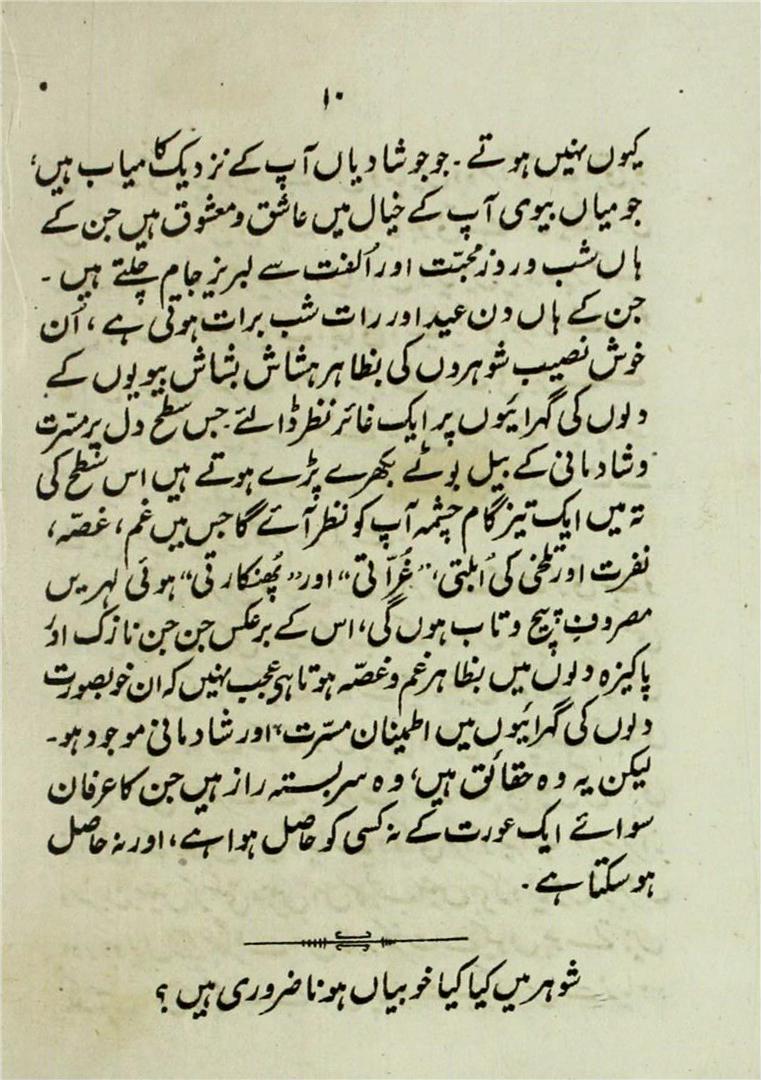 ۱۰
کیوں نہیں ہوتے ۔ جو جو شادیاں آپ کے نزدیک کامیاب ہیں،
جو میاں بیوی آپ کے خیال میں عاشق و معشوق ہیں جن کے
ہاں شب و روز محبّت اور اُلفت سے لبریز جام چلتے ہیں ۔
جن کے ہاں دن عید اور رات شب برات ہوتی ہے ، اُن
خوش نصیب شوہروں کی بظاہر ہشاش بشاش بیویوں کے
دلوں کی گہرائیوں پر ایک غائر نظر ڈالئے ۔ جس سطح دل پر مسّرت
و شادمانی کے بیل بوٹے بکھرے پڑے ہوتے ہیں اس سطح کی
تہ میں ایک تیز گام چشمہ آپ کو نظر آئے گا جس میں غم ، غصّہ ،
نفرت اور تلخی کی اُبلتی، "غُرّاتی" اور "پُھنکارتی" ہوئی لہریں
مصروفِ پیچ و تاب ہوں گی، اس کے برعکس جن جن نازک اور
پاکیزہ دلوں میں بظاہر غم و غصّہ ہوتا ہی عجب نہیں کہ ان خوبصورت
دلوں کی گہرائیوں میں اطمینان مسّرت، اور شادمانی موجود ہو ۔
لیکن یہ وہ حقائق ہیں، وہ سربستہ راز ہیں جن کا عرفان
سوائے ایک عورت کے نہ کسی کو حاصل ہوا ہے ، اور نہ حاصل
ہو سکتا ہے ۔
شوہر میں کیا کیا خوبیاں ہونا ضروری ہیں ؟